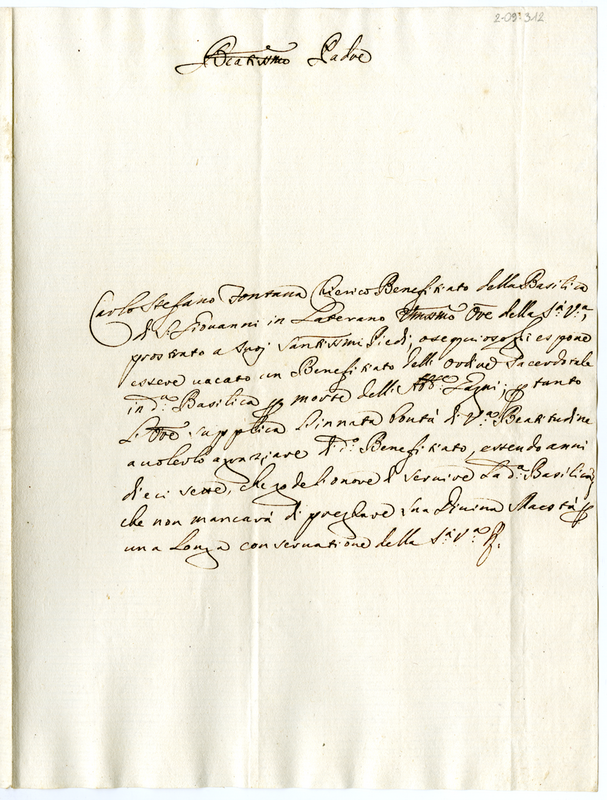 2-09-312
Beatissimo Padre
Carlo Stefano Fontana Chierico Benefitiato della Basilica
di S. Giovanni in Laterano Umilissimo Ore della S.ᵃ V.ᵃ
prostrato a suoj Santissimi Piedi, ossequioso gli espone
essere uacato un Benefitiato dell'Ordine Sacerdotale
in d.ᵃ Basilica ꝑ morte dell' ; ꝑ tanto
L'Ore supplica l'innata bontà di V.ᵃ Beatitudine
a uolerlo aggratiare di d.ᵒ Benefitiato, essendo anni
dieci sette, che gode l'onore di seruire La d.ᵃ Basilica,
che non mancarà di pregare Sua Diuina Maestà ꝑ
una Longa conseruatione della S.ᵃ V.ᵃ